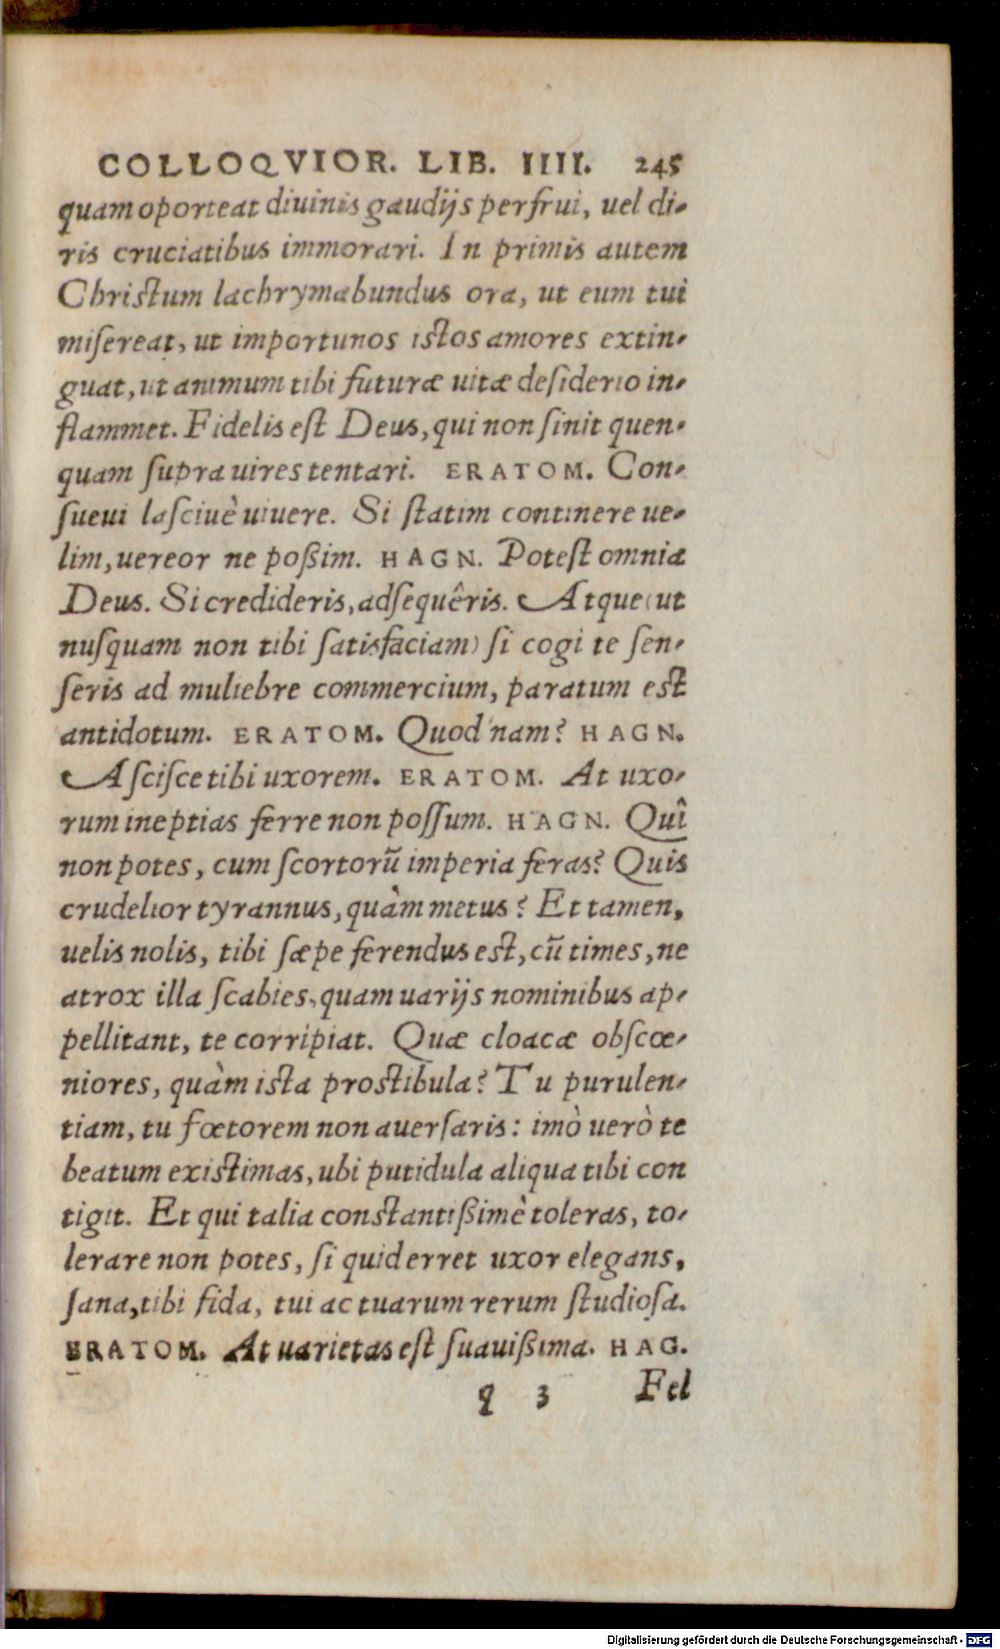 COLLOQVIOR. LIB. IIII. 245
quam oporteat diuinis gaudijs perfrui, uel di-
ris cruciatibus immorari. In primis autem
Christum lachrymabundus ora, ut eum tui
miſereat, ut importunos istos amores extin-
guat, ut animum tibi futuræ uitæ deſiderio in-
flammet. Fidelis est Deus, qui non ſinit quen-
quam ſupra uires tentari. ERATOM. Con-
ſueui laſciuè uiuere. Si ſtatim continere ue-
lim, uereor ne poßim. HAGN. Poteſt omnia
Deus. Si credideris, adſequêris. Atque (ut
nuſquam non tibi ſatisfaciam) ſi cogi te ſen-
ſeris ad muliebre commercium, paratum est
antidotum. ERATOM. Quod nam? HAGN.
Aſciſce tibi uxorem. ERATOM. At uxo-
rum ineptias ferre non poſſum. HAGN. Quî
non potes, cum ſcortorū imperia feras? Quis
crudelior tyrannus, quàm metus? Et tamen,
uelis nolis, tibi ſæpe ferendus eſt, cū times, ne
atrox illa ſcabies, quam uarijs nominibus ap-
pellitant, te corripiat. Quæ cloacæ obſcœ-
niores, quàm ista prostibula? Tu purulen-
tiam, tu fœtorem non auerſaris: imò uerò te
beatum existimas, ubi putidula aliqua tibi con
tigit. Et qui talia constantißimè toleras, to-
lerare non potes, ſi quid erret uxor elegans,
ſana, tibi fida, tui ac tuarum rerum ſtudioſa.
ERATOM. At uarietas eſt ſuauißima. HAG.
q 3 Fel
Digitalisierung gefördert durch die Deutsche Forschungsgemeinschaft - DFG